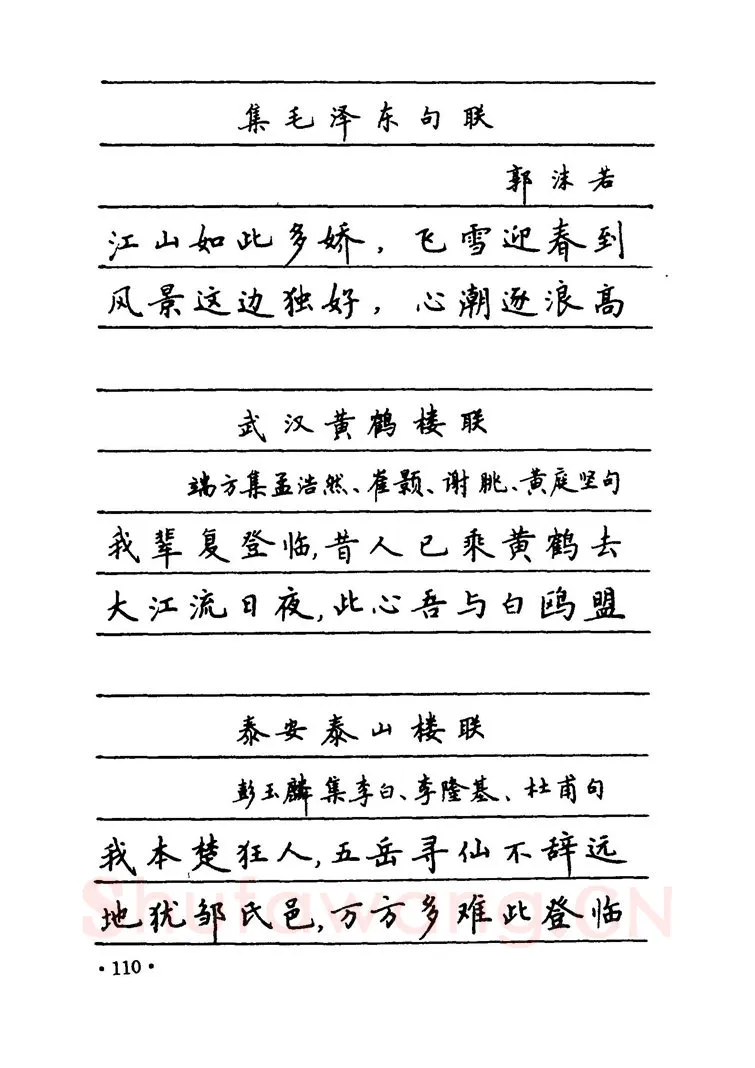 集毛泽东句联
郭沫若
江山如此多娇，飞雪迎春到
风景这边独好，心潮逐浪高
武汉黄鹤楼联
端方集孟浩然、崔颢、谢朓、黄庭坚句
我辈复登临，昔人已乘黄鹤去
大江流日夜，此心吾与白鸥盟
泰安泰山楼联
彭玉麟集李白、李隆基、杜甫句
我本楚狂人，五岳寻仙不辞远
地犹邹氏邑，万方多难此登临
Shufawang.CN
·110·